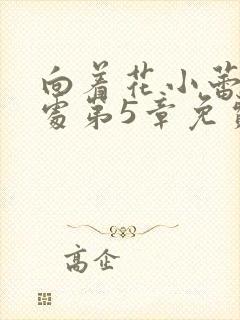 向着花小蕾
处第5章免费
高企